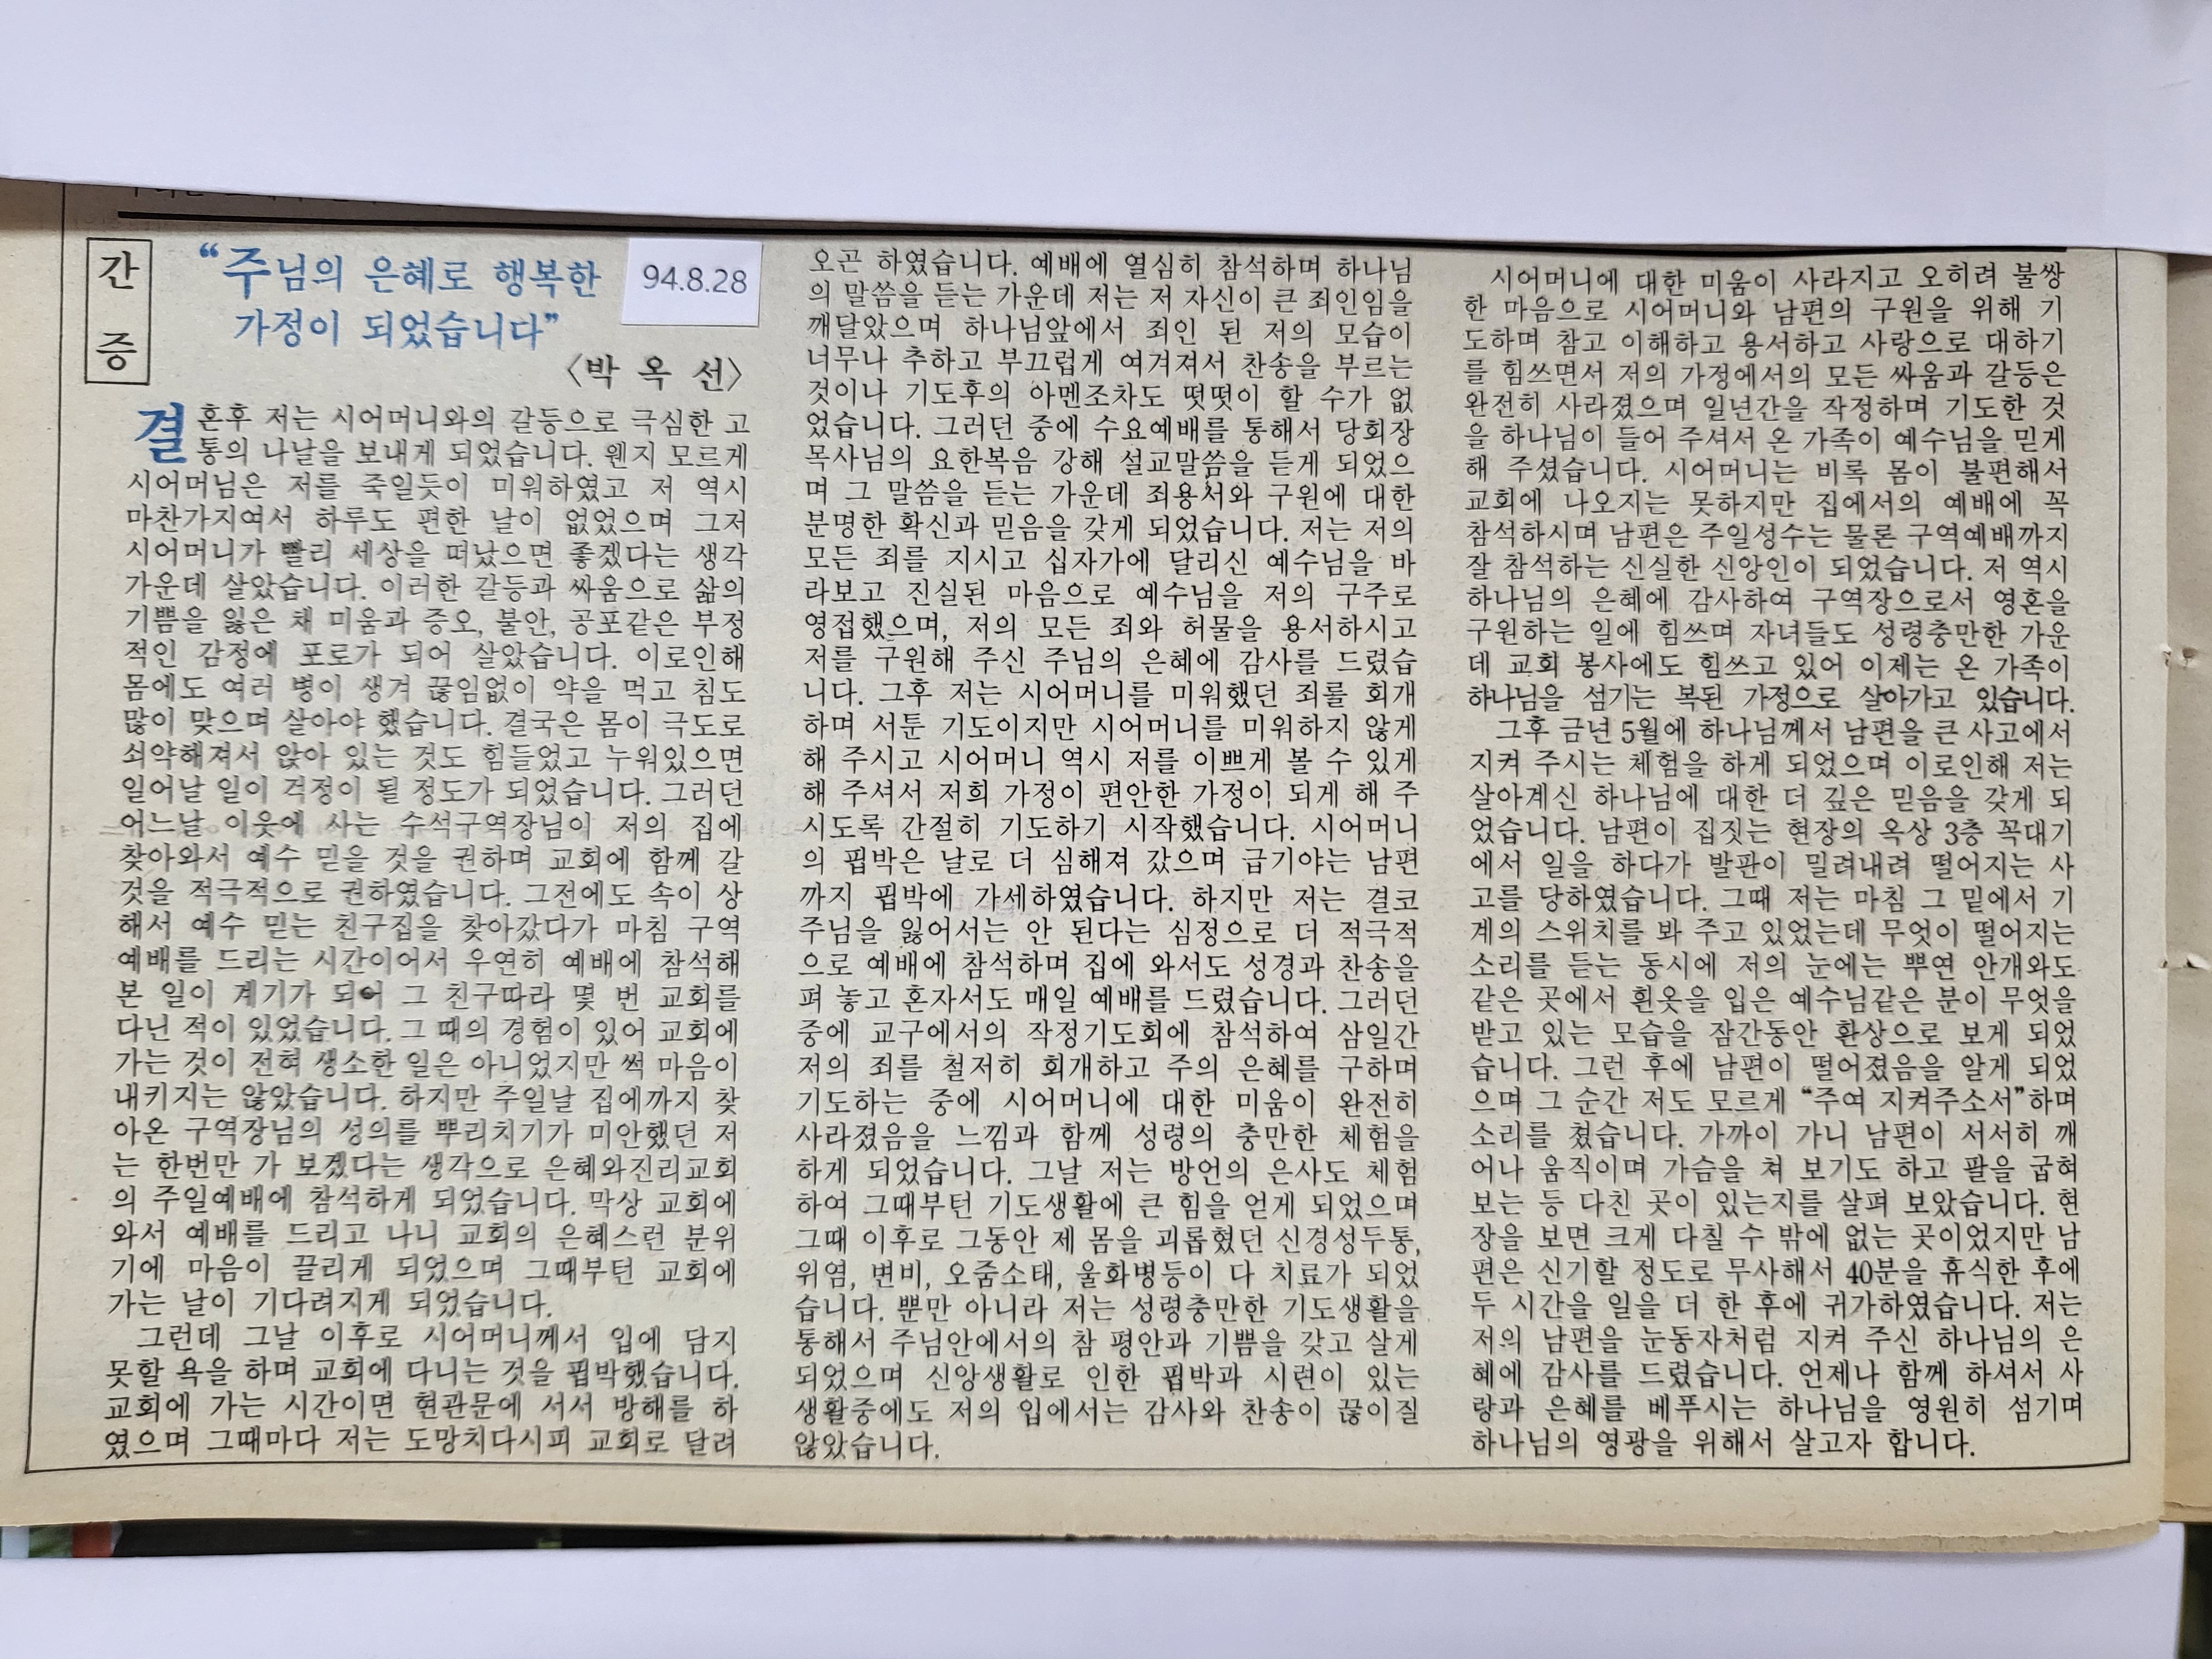 간
증
“주님의 은혜로 행복한
가정이 되었습니다”
94.8.28
〈박 옥 선〉
결혼후 저는 시어머니와의 갈등으로 극심한 고
통의 나날을 보내게 되었습니다. 웬지 모르게
시어머님은 저를 죽일듯이 미워하였고 저 역시
마찬가지여서 하루도 편한 날이 없었으며 그저
시어머니가 빨리 세상을 떠났으면 좋겠다는 생각
가운데 살았습니다. 이러한 갈등과 싸움으로 삶의
기쁨을 잃은 채 미움과 증오, 불안, 공포같은 부정
적인 감정에 포로가 되어 살았습니다. 이로인해
몸에도 여러 병이 생겨 끊임없이 약을 먹고 침도
많이 맞으며 살아야 했습니다. 결국은 몸이 극도로
쇠약해져서 앉아 있는 것도 힘들었고 누워있으면
일어날 일이 걱정이 될 정도가 되었습니다. 그러던
어느날 이웃에 사는 수석구역장님이 저의 집에
찾아와서 예수 믿을 것을 권하며 교회에 함께 갈
것을 적극적으로 권하였습니다. 그전에도 속이 상
해서 예수 믿는 친구집을 찾아갔다가 마침 구역
예배를 드리는 시간이어서 우연히 예배에 참석해
본 일이 계기가 되어 그 친구따라 몇 번 교회를
다닌 적이 있었습니다. 그 때의 경험이 있어 교회에
가는 것이 전혀 생소한 일은 아니었지만 썩 마음이
내키지는 않았습니다. 하지만 주일날 집에까지 찾
아온 구역장님의 성의를 뿌리치기가 미안했던 저
는 한번만 가 보겠다는 생각으로 은혜와진리교회
의 주일예배에 참석하게 되었습니다. 막상 교회에
와서 예배를 드리고 나니 교회의 은혜스런 분위
기에 마음이 끌리게 되었으며 그때부턴 교회에
가는 날이 기다려지게 되었습니다.
그런데 그날 이후로 시어머니께서 입에 담지
못할 욕을 하며 교회에 다니는 것을 핍박했습니다.
교회에 가는 시간이면 현관문에 서서 방해를 하
였으며 그때마다 저는 도망치다시피 교회로 달려
오곤 하였습니다. 예배에 열심히 참석하며 하나님
의 말씀을 듣는 가운데 저는 저 자신이 큰 죄인임을
깨달았으며 하나님앞에서 죄인 된 저의 모습이
너무나 추하고 부끄럽게 여겨져서 찬송을 부르는
것이나 기도후의 아멘조차도 떳떳이 할 수가 없
었습니다. 그러던 중에 수요예배를 통해서 당회장
목사님의 요한복음 강해 설교말씀을 듣게 되었으
며 그 말씀을 듣는 가운데 죄용서와 구원에 대한
분명한 확신과 믿음을 갖게 되었습니다. 저는 저의
모든 죄를 지시고 십자가에 달리신 예수님을 바
라보고 진실된 마음으로 예수님을 저의 구주로
영접했으며, 저의 모든 죄와 허물을 용서하시고
저를 구원해 주신 주님의 은혜에 감사를 드렸습
니다. 그후 저는 시어머니를 미워했던 죄를 회개
하며 서툰 기도이지만 시어머니를 미워하지 않게
해 주시고 시어머니 역시 저를 이쁘게 볼 수 있게
해 주셔서 저희 가정이 편안한 가정이 되게 해 주
시도록 간절히 기도하기 시작했습니다. 시어머니
의 핍박은 날로 더 심해져 갔으며 급기야는 남편
까지 핍박에 가세하였습니다. 하지만 저는 결코
주님을 잃어서는 안 된다는 심정으로 더 적극적
으로 예배에 참석하며 집에 와서도 성경과 찬송을
펴 놓고 혼자서도 매일 예배를 드렸습니다. 그러던
중에 교구에서의 작정기도회에 참석하여 삼일간
저의 죄를 철저히 회개하고 주의 은혜를 구하며
기도하는 중에 시어머니에 대한 미움이 완전히
사라졌음을 느낌과 함께 성령의 충만한 체험을
하게 되었습니다. 그날 저는 방언의 은사도 체험
하여 그때부턴 기도생활에 큰 힘을 얻게 되었으며
그때 이후로 그동안 제 몸을 괴롭혔던 신경성두통,
위염, 변비, 오줌소태, 울화병등이 다 치료가 되었
습니다. 뿐만 아니라 저는 성령충만한 기도생활을
통해서 주님안에서의 참 평안과 기쁨을 갖고 살게
되었으며 신앙생활로 인한 핍박과 시련이 있는
생활중에도 저의 입에서는 감사와 찬송이 끊이질
않았습니다.
시어머니에 대한 미움이 사라지고 오히려 불쌍
한 마음으로 시어머니와 남편의 구원을 위해 기
도하며 참고 이해하고 용서하고 사랑으로 대하기
를 힘쓰면서 저의 가정에서의 모든 싸움과 갈등은
완전히 사라졌으며 일년간을 작정하며 기도한 것
을 하나님이 들어 주셔서 온 가족이 예수님을 믿게
해 주셨습니다. 시어머니는 비록 몸이 불편해서
교회에 나오지는 못하지만 집에서의 예배에 꼭
참석하시며 남편은 주일성수는 물론 구역예배까지
잘 참석하는 신실한 신앙인이 되었습니다. 저 역시
하나님의 은혜에 감사하여 구역장으로서 영혼을
구원하는 일에 힘쓰며 자녀들도 성령충만한 가운
데 교회 봉사에도 힘쓰고 있어 이제는 온 가족이
하나님을 섬기는 복된 가정으로 살아가고 있습니다.
그후 금년 5월에 하나님께서 남편을 큰 사고에서
지켜 주시는 체험을 하게 되었으며 이로인해 저는
살아계신 하나님에 대한 더 깊은 믿음을 갖게 되
었습니다. 남편이 집짓는 현장의 옥상 3층 꼭대기
에서 일을 하다가 발판이 밀려내려 떨어지는 사
고를 당하였습니다. 그때 저는 마침 그 밑에서 기
계의 스위치를 봐 주고 있었는데 무엇이 떨어지는
소리를 듣는 동시에 저의 눈에는 뿌연 안개와도
같은 곳에서 흰옷을 입은 예수님같은 분이 무엇을
받고 있는 모습을 잠간동안 환상으로 보게 되었
습니다. 그런 후에 남편이 떨어졌음을 알게 되었
으며 그 순간 저도 모르게 “주여 지켜주소서”하며
소리를 쳤습니다. 가까이 가니 남편이 서서히 깨
어나 움직이며 가슴을 쳐 보기도 하고 팔을 굽혀
보는 등 다친 곳이 있는지를 살펴 보았습니다. 현
장을 보면 크게 다칠 수 밖에 없는 곳이었지만 남
편은 신기할 정도로 무사해서 40분을 휴식한 후에
두 시간을 일을 더 한 후에 귀가하였습니다. 저는
저의 남편을 눈동자처럼 지켜 주신 하나님의 은
혜에 감사를 드렸습니다. 언제나 함께 하셔서 사
랑과 은혜를 베푸시는 하나님을 영원히 섬기며
하나님의 영광을 위해서 살고자 합니다.